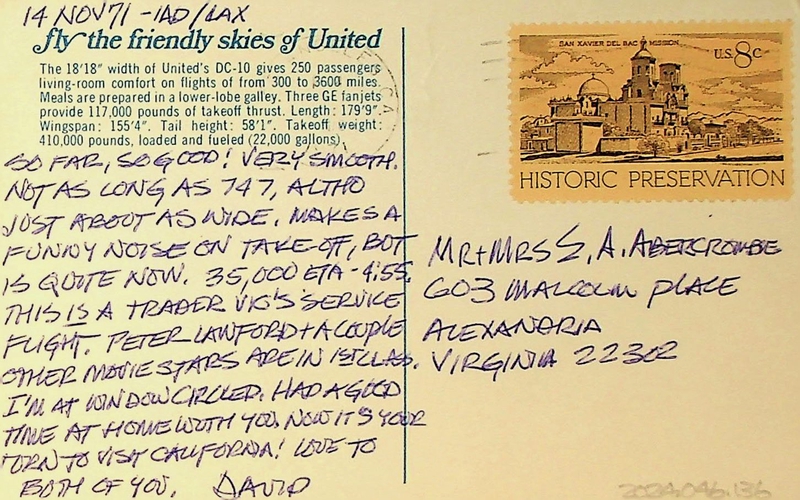 14 NOV 71 - IAD/LAX
fly the friendly skies of United
The 18'18" width of United's DC-10 gives 250 passengers
living-room comfort on flights of from 300 to 3600 miles.
Meals are prepared in a lower-lobe galley. Three GE fanjets
provide 117,000 pounds of takeoff thrust. Length: 179'9".
Wingspan: 155'4". Tail height: 58'1". Takeoff weight:
410,000 pounds, loaded and fueled (22,000 gallons).
SO FAR, SO GOOD! VERY SMOOTH.
NOT AS LONG AS 747, ALTHO
JUST ABOUT AS WIDE. MAKES A
FUNNY NOISE ON TAKE-OFF, BUT
IS QUITE NOW. 35,000 ETA - 4:55.
THIS IS A TRADER VIC'S SERVICE
FLIGHT. PETER LAWFORD + A COUPLE
OTHER MOVIE STARS ARE IN 1ST CLASS.
I'M AT WINDOW CIRCLED. HAD A GOOD
TIME AT HOME WITH YOU. NOW IT'S YOUR
TURN TO VISIT CALIFORNIA! LOVE TO
BOTH OF YOU, DAVID
SAN XAVIER DEL BAC MISSION
U.S. 8c
HISTORIC PRESERVATION
MR + MRS S. A. ABERCROMBE
603 MALCOLM PLACE
ALEXANDRIA
VIRGINIA 22302
2024.046.136